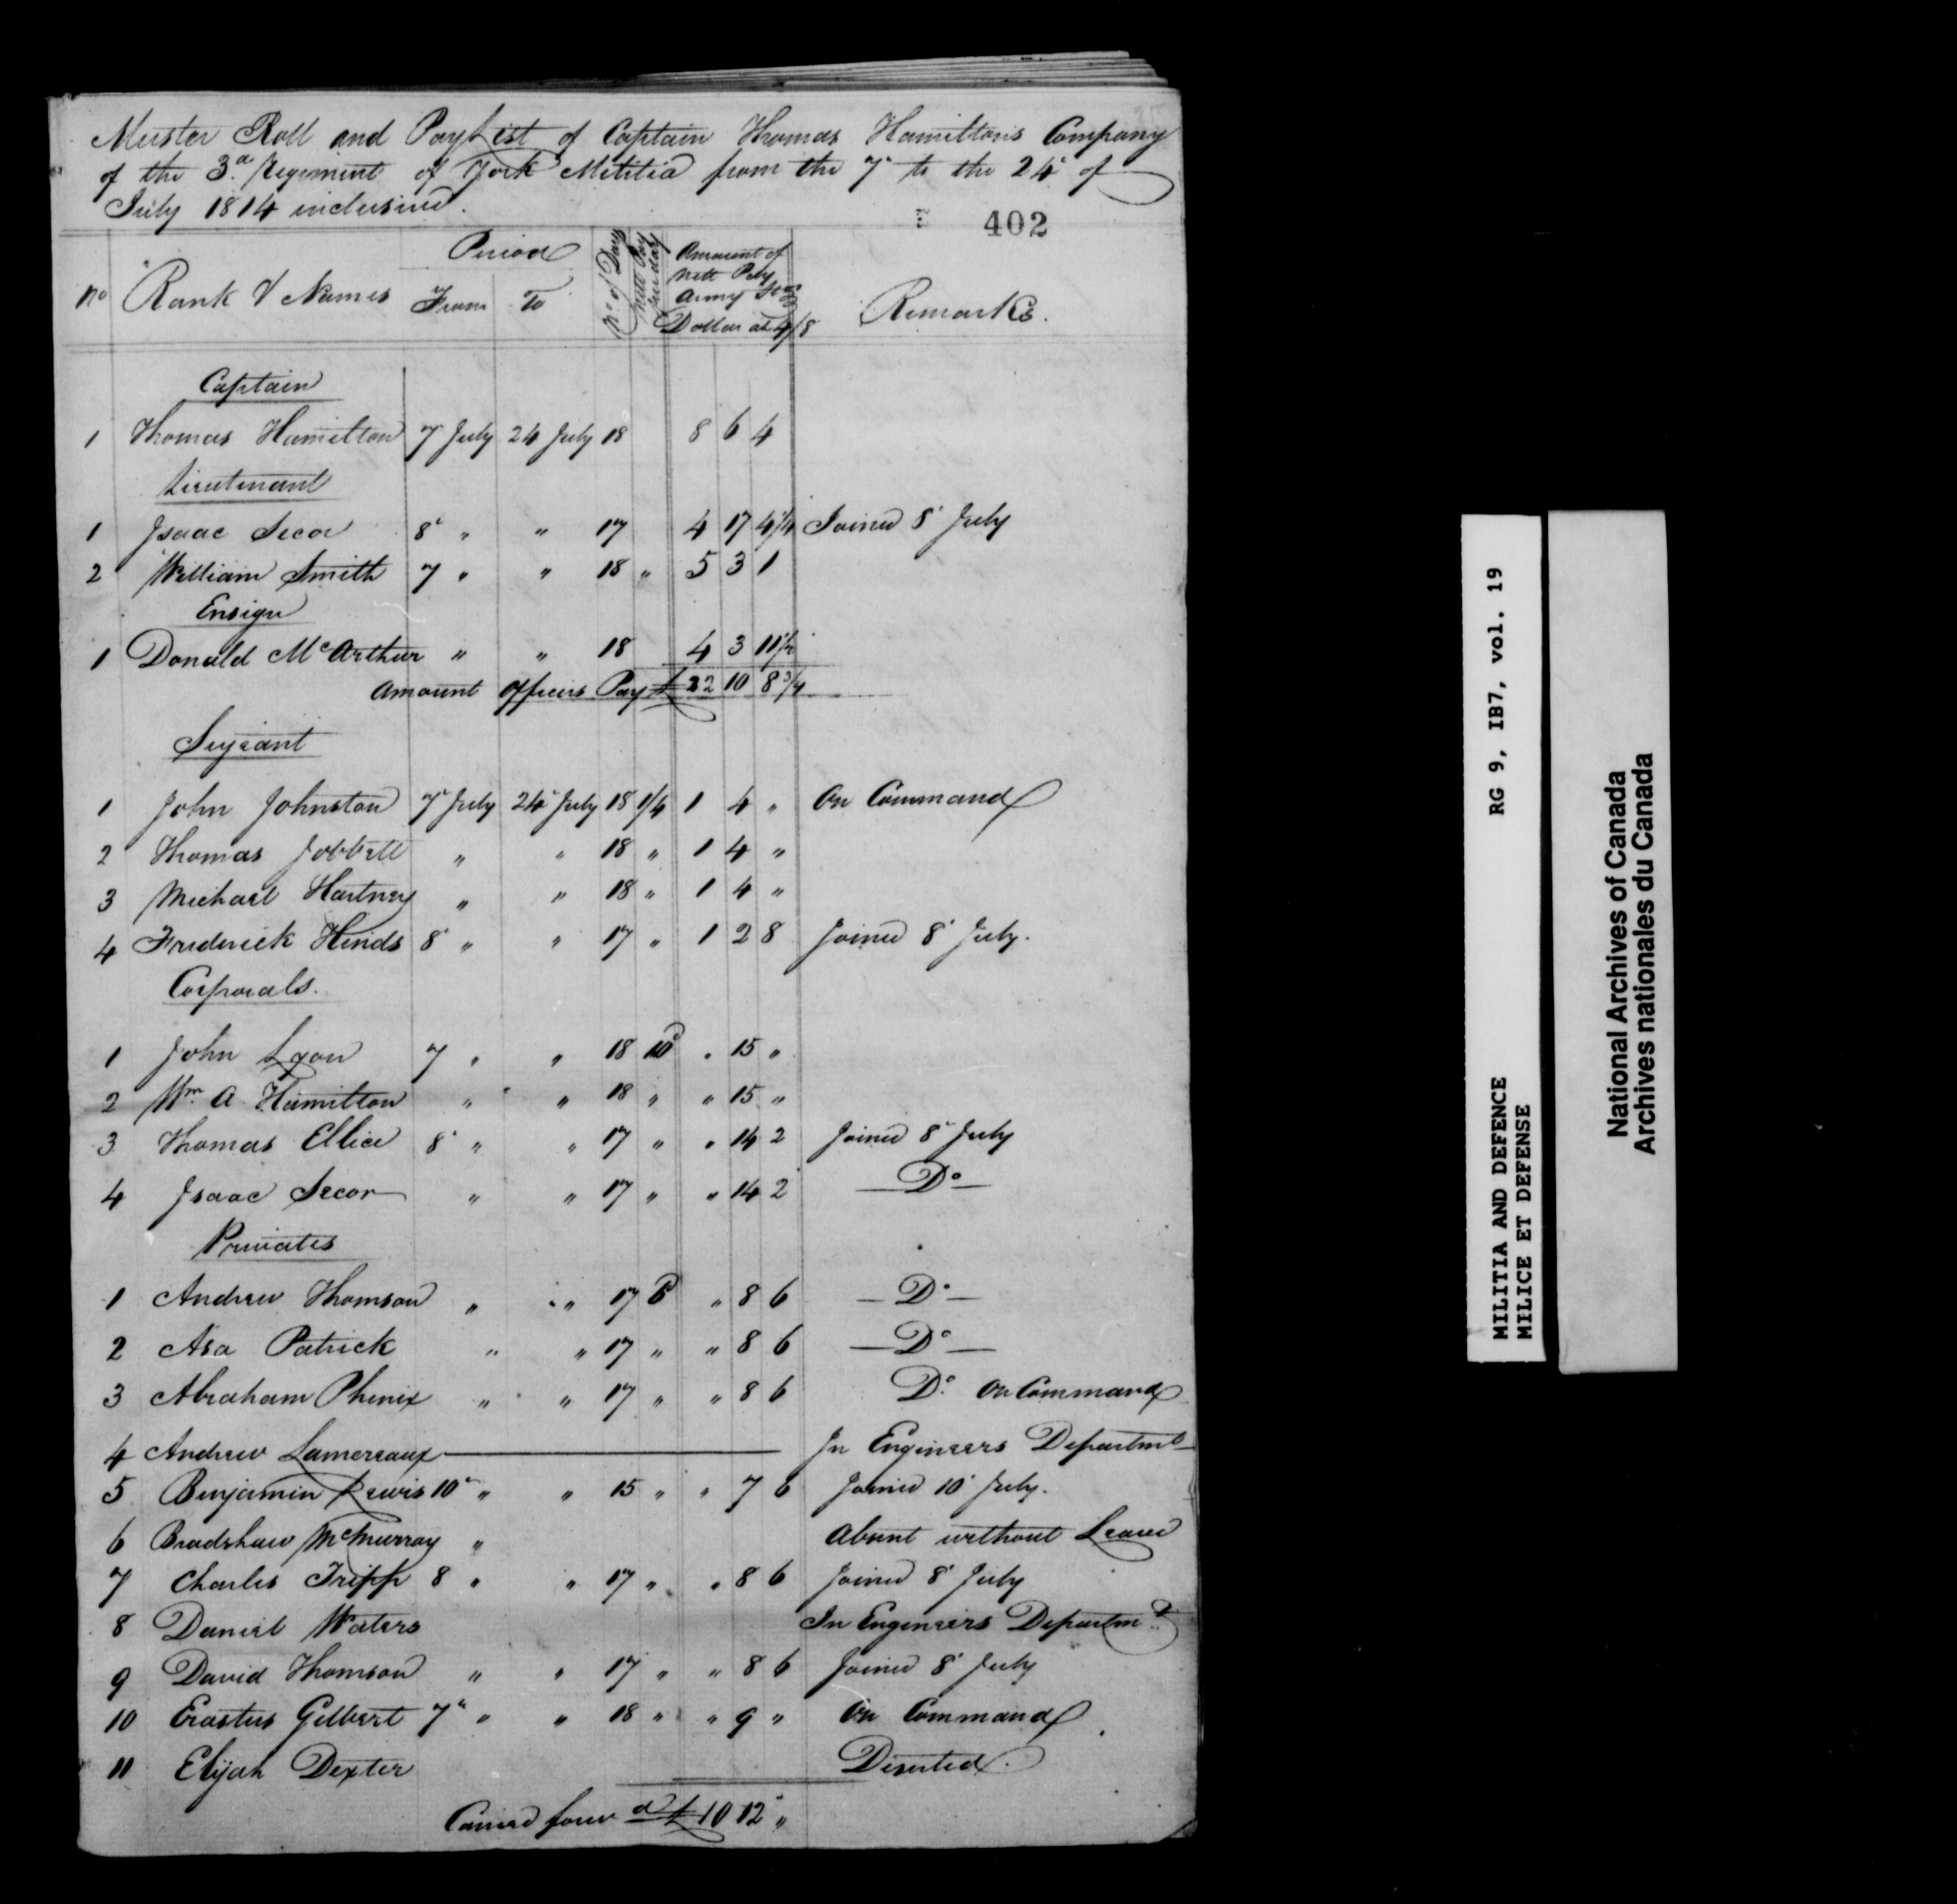 Muster Roll and Pay List of Captain Thomas Hamiltons Company
of the 3d Regiment of York Militia from the 7th to the 24th of
July 1814 inclusive.
402
No Rank & Names Period From To No. of Days Nett Pay per day Amount of Nett Pay Army Stg Dollar at 4/8 Remarks.
Captain
1 Thomas Hamilton 7 July 24 July 18 8 6 4
Lieutenant
1 Isaac Secor 8th " " 17 4 17 4 1/4 Joined 8th July
2 William Smith 7 " " 18 " 5 3 1
Ensign
1 Donald McArthur " " 18 4 3 11 1/2
Amount Officers Pay £ 22 10 8 3/4
Serjeant
1 John Johnston 7th July 24th July 18 1/4 1 4 " On Command
2 Thomas Jobbitt " " 18 " 1 4 "
3 Michael Hartney " " 18 " 1 4 "
4 Frederick Hinds 8th " " 17 " 1 2 8 Joined 8th July.
Corporals.
1 John Lyon 7 " " 18 10d " 15 "
2 Wm A Hamilton " " 18 " " 15 "
3 Thomas Ellice 8th " " 17 " " 14 2 Joined 8th July
4 Isaac Secor " " 17 " " 14 2 — Do —
Privates
1 Andrew Thomson " " 17 6d " 8 6 — Do —
2 Asa Patrick " " 17 " " 8 6 — Do —
3 Abraham Phenix " " 17 " " 8 6 Do. On Command
4 Andrew Lamereaux — In Engineers Departmt
5 Benjamin Lewis 10th " " 15 " " 7 6 Joined 10th July.
6 Bradshaw McMurray " Absent without Leave
7 Charles Tripp 8 " " 17 " " 8 6 Joined 8th July
8 Daniel Waters In Engineers Departmt
9 David Thomson " " 17 " " 8 6 Joined 8th July
10 Erastus Gilbert 7th " " 18 " " 9 " On Command
11 Elijah Dexter Deserted.
Carried forwd £ 10 12 "
MILITIA AND DEFENCE RG 9, IB7, vol. 19
MILICE ET DEFENSE
National Archives of Canada
Archives nationales du Canada